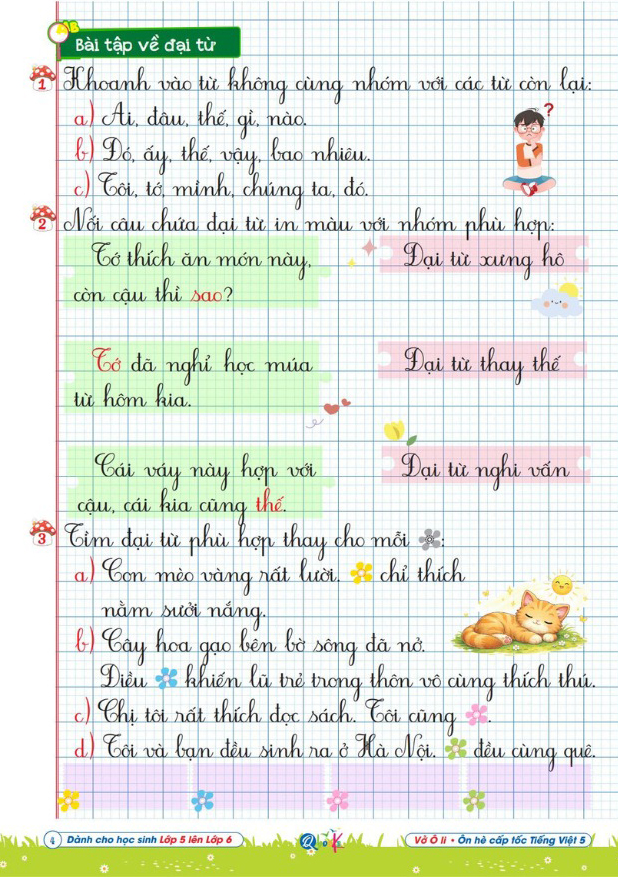 Bài tập về đại từ
1 Khoanh vào từ không cùng nhóm với các từ còn lại:
a) Ai, đâu, thế, gì, nào.
b) Đó, ấy, thế, vậy, bao nhiêu.
c) Tôi, tớ, mình, chúng ta, đó.
2 Nối câu chứa đại từ in màu với nhóm phù hợp:
Tớ thích ăn món này, Đại từ xưng hô
còn cậu thì sao?
Tớ đã nghỉ học múa Đại từ thay thế
từ hôm kia.
Cái váy này hợp với Đại từ nghi vấn
cậu, cái kia cũng thế.
3 Tìm đại từ phù hợp thay cho mỗi :
a) Con mèo vàng rất lười. chỉ thích
nằm sưởi nắng.
b) Cây hoa gạo bên bờ sông đã nở.
Điều khiến lũ trẻ trong thôn vô cùng thích thú.
c) Chị tôi rất thích đọc sách. Tôi cũng .
d) Tôi và bạn đều sinh ra ở Hà Nội. đều cùng quê.
4 Dành cho học sinh Lớp 5 lên Lớp 6 Vở Ô li • Ôn hè cấp tốc Tiếng Việt 5